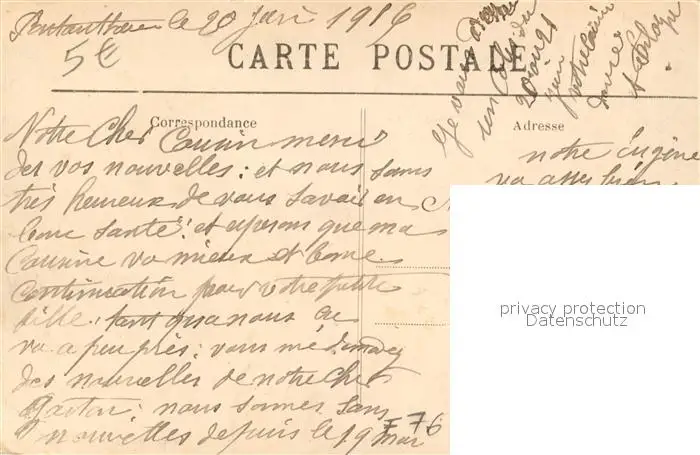 le 20 1916
5€
CARTE POSTALE
Correspondance
Adresse
Notre Cher Cousin merci
des vos nouvelles : et nous sams
très heureux de vous savoir en
bonne santé : et esperons que ma
Cousine va mieux et bonne
continuation pour votre petite
fille : tant qua nous ca
va a peu près : vous me demandez
des nouvelles de notre Cher
Gaston : nous sommes sans
nouvelles depuis le 19 mai
F 76
Je vous
un
20
notre Eugène
va assez bien
privacy protection
Datenschutz